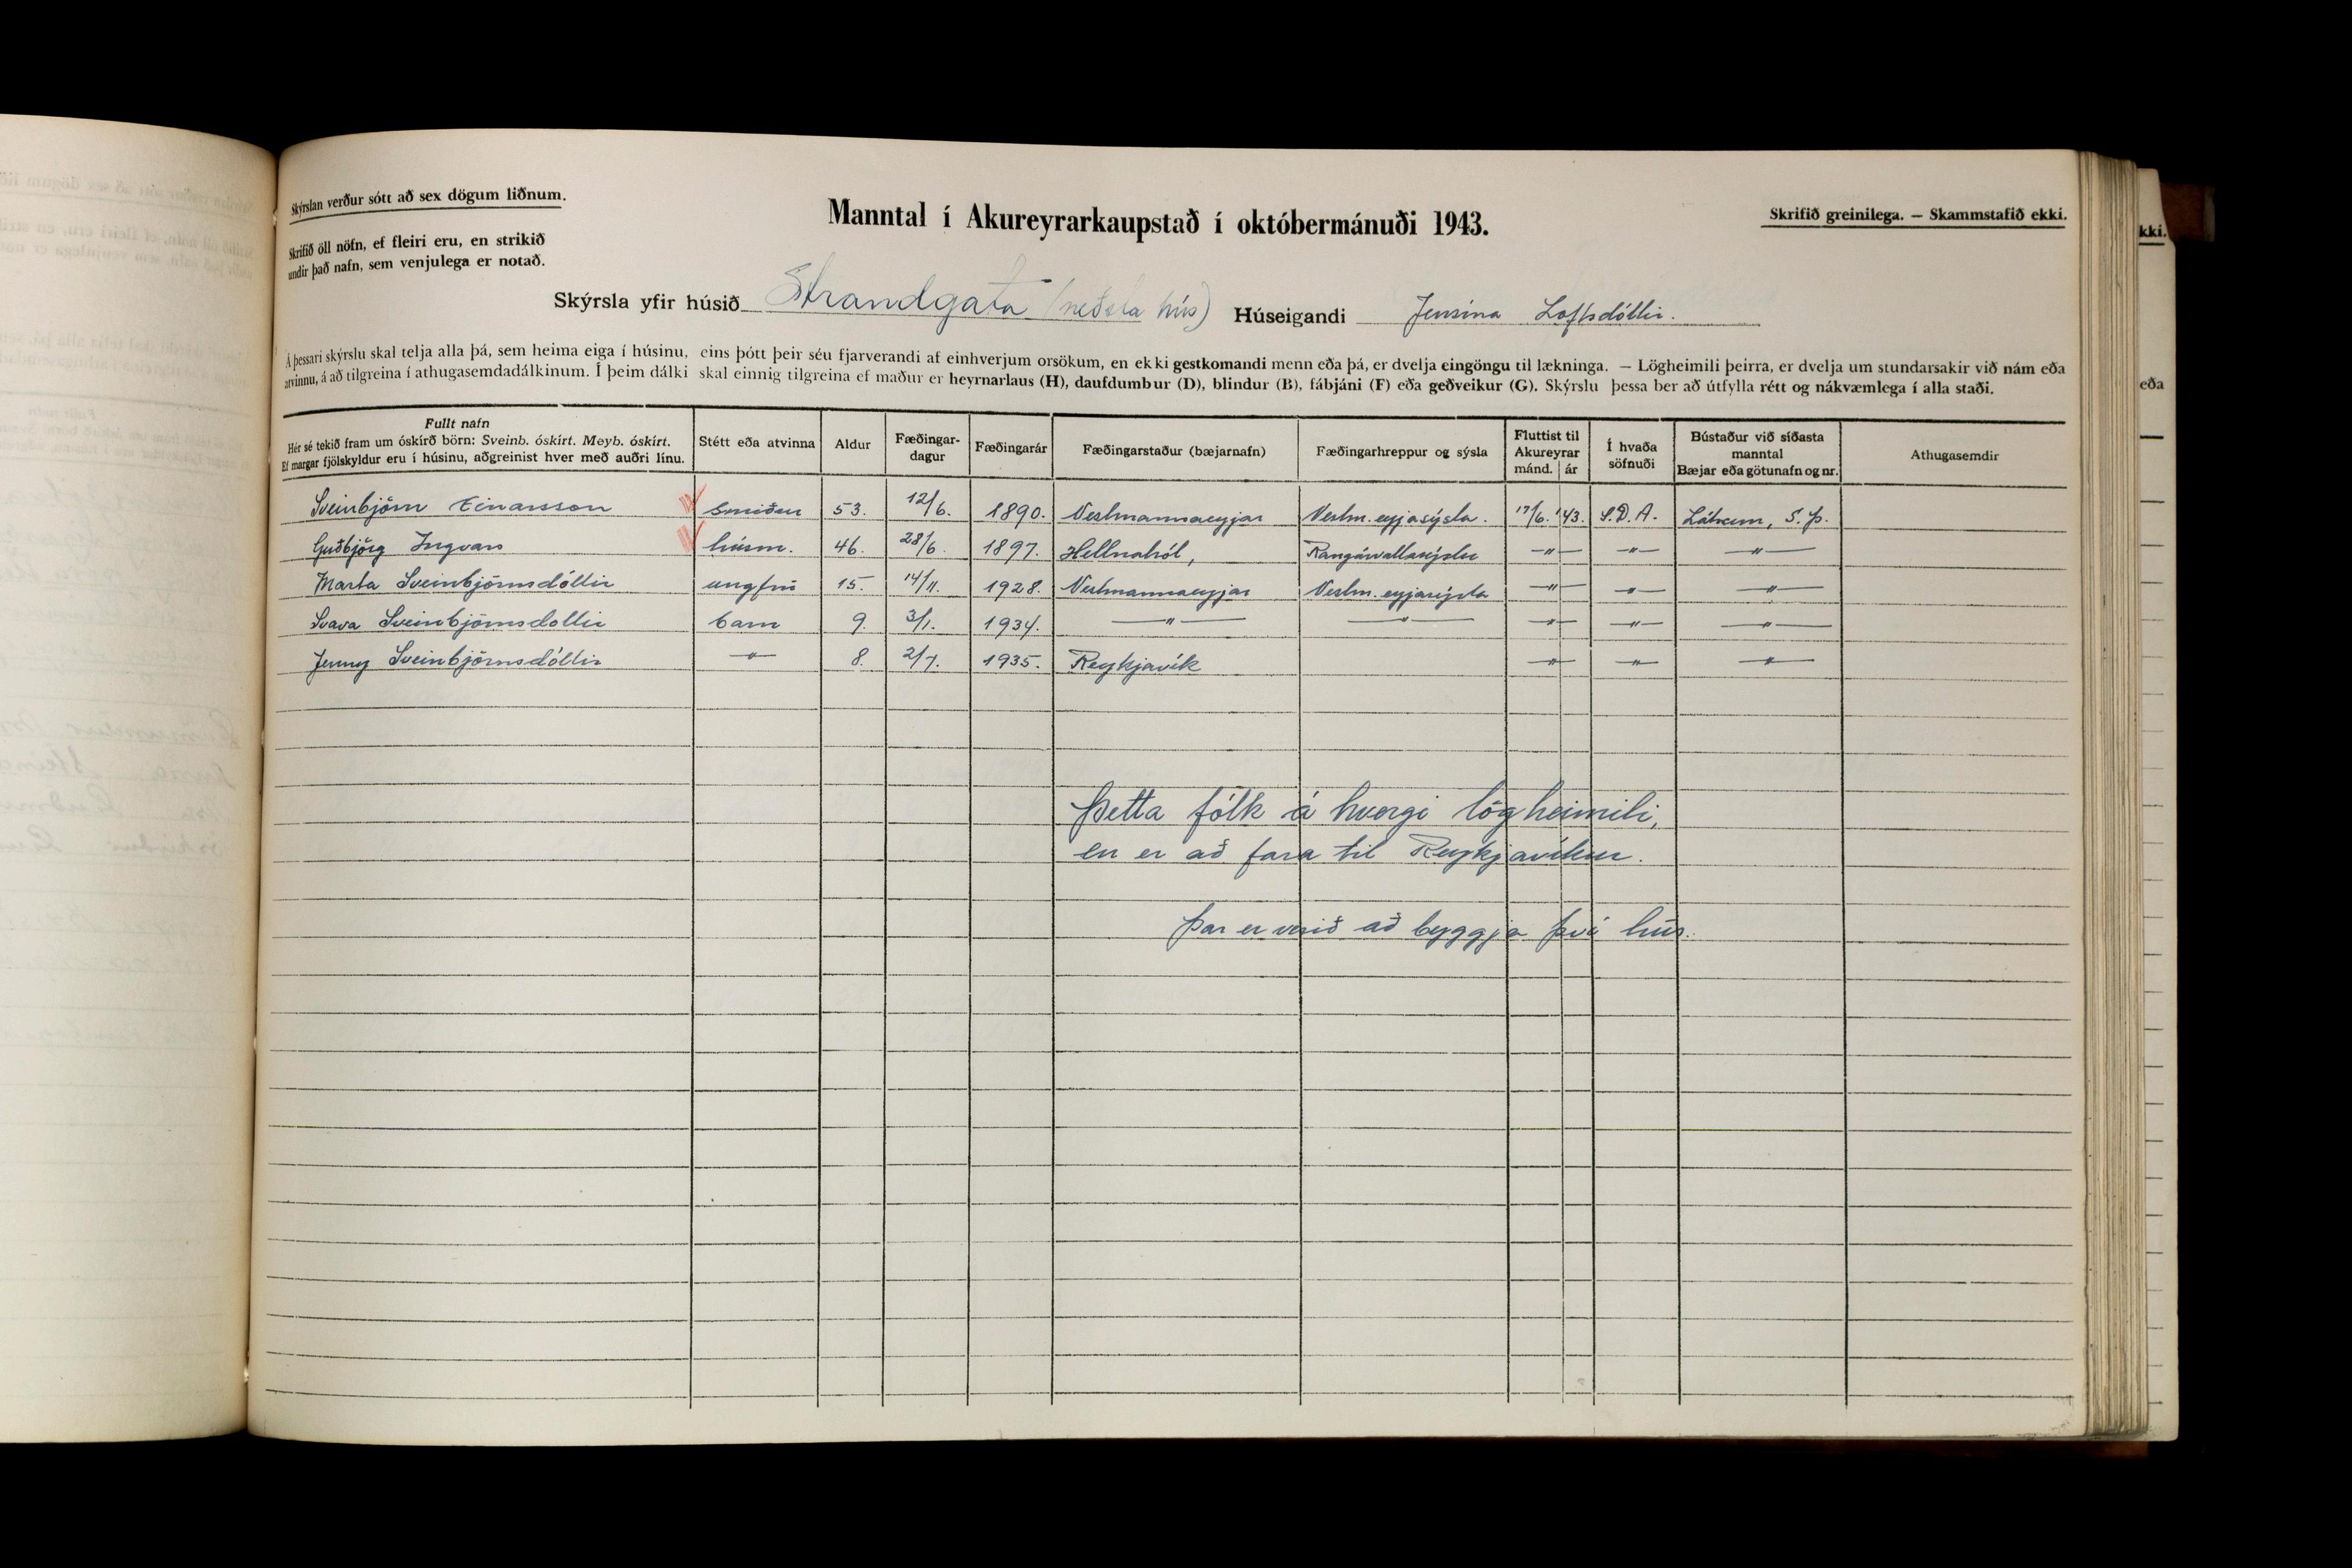 Skýrslan verður sótt að sex dögum liðnum.
Skrifið öll nöfn, ef fleiri eru, en strikið
undir það nafn, sem venjulega er notað.
Manntal í Akureyrarkaupstað í októbermánuði 1943.
Skrifið greinilega. — Skammstafið ekki.
Skýrsla yfir húsið Strandgata (neðsta hús) Húseigandi Jensína Loftsdóttir.
Á þessari skýrslu skal telja alla þá, sem heima eiga í húsinu, eins þótt þeir séu fjarverandi af einhverjum orsökum, en ekki gestkomandi menn eða þá, er dvelja eingöngu til lækninga. — Lögheimili þeirra, er dvelja um stundarsakir við nám eða
atvinnu, á að tilgreina í athugasemdadálkinum. Í þeim dálki skal einnig tilgreina ef maður er heyrnarlaus (H), daufdumbur (D), blindur (B), fábjáni (F) eða geðveikur (G). Skýrslu þessa ber að útfylla rétt og nákvæmlega í alla staði.
Fullt nafn
Hér sé tekið fram um óskírð börn: Sveinb. óskírt. Meyb. óskírt.
Ef margar fjölskyldur eru í húsinu, aðgreinist hver með auðri línu.
Stétt eða atvinna
Aldur
Fæðingar-
dagur
Fæðingarár
Fæðingarstaður (bæjarnafn)
Fæðingarhreppur og sýsla
Fluttist til
Akureyrar
mánd. ár
Í hvaða
söfnuði
Bústaður við síðasta
manntal
Bæjar eða götunafn og nr.
Athugasemdir
Sveinbjörn Einarsson smiður 53. 12/6. 1890. Vestmannaeyjar Vestm.eyjasýsla. 17/6. '43. S.D.A. S. Þ.
Guðbjörg Ingvars húsm. 46. 28/6. 1897. Hellnahól, Rangárvallasýslu —"— —"— —"—
Marta Sveinbjörnsdóttir ungfrú 15. 14/11. 1928. Vestmannaeyjar Vestm.eyjasýsla —"— —"— —"—
Svava Sveinbjörnsdóttir barn 9. 3/1. 1934. —"— —"— —"— —"— —"—
Jenny Sveinbjörnsdóttir —"— 8. 2/7. 1935. Reykjavík —"— —"— —"—
Þetta fólk á hvergi lögheimili,
en er að fara til Reykjavíkur.
Þar er verið að byggja því hús.
kki.
eða